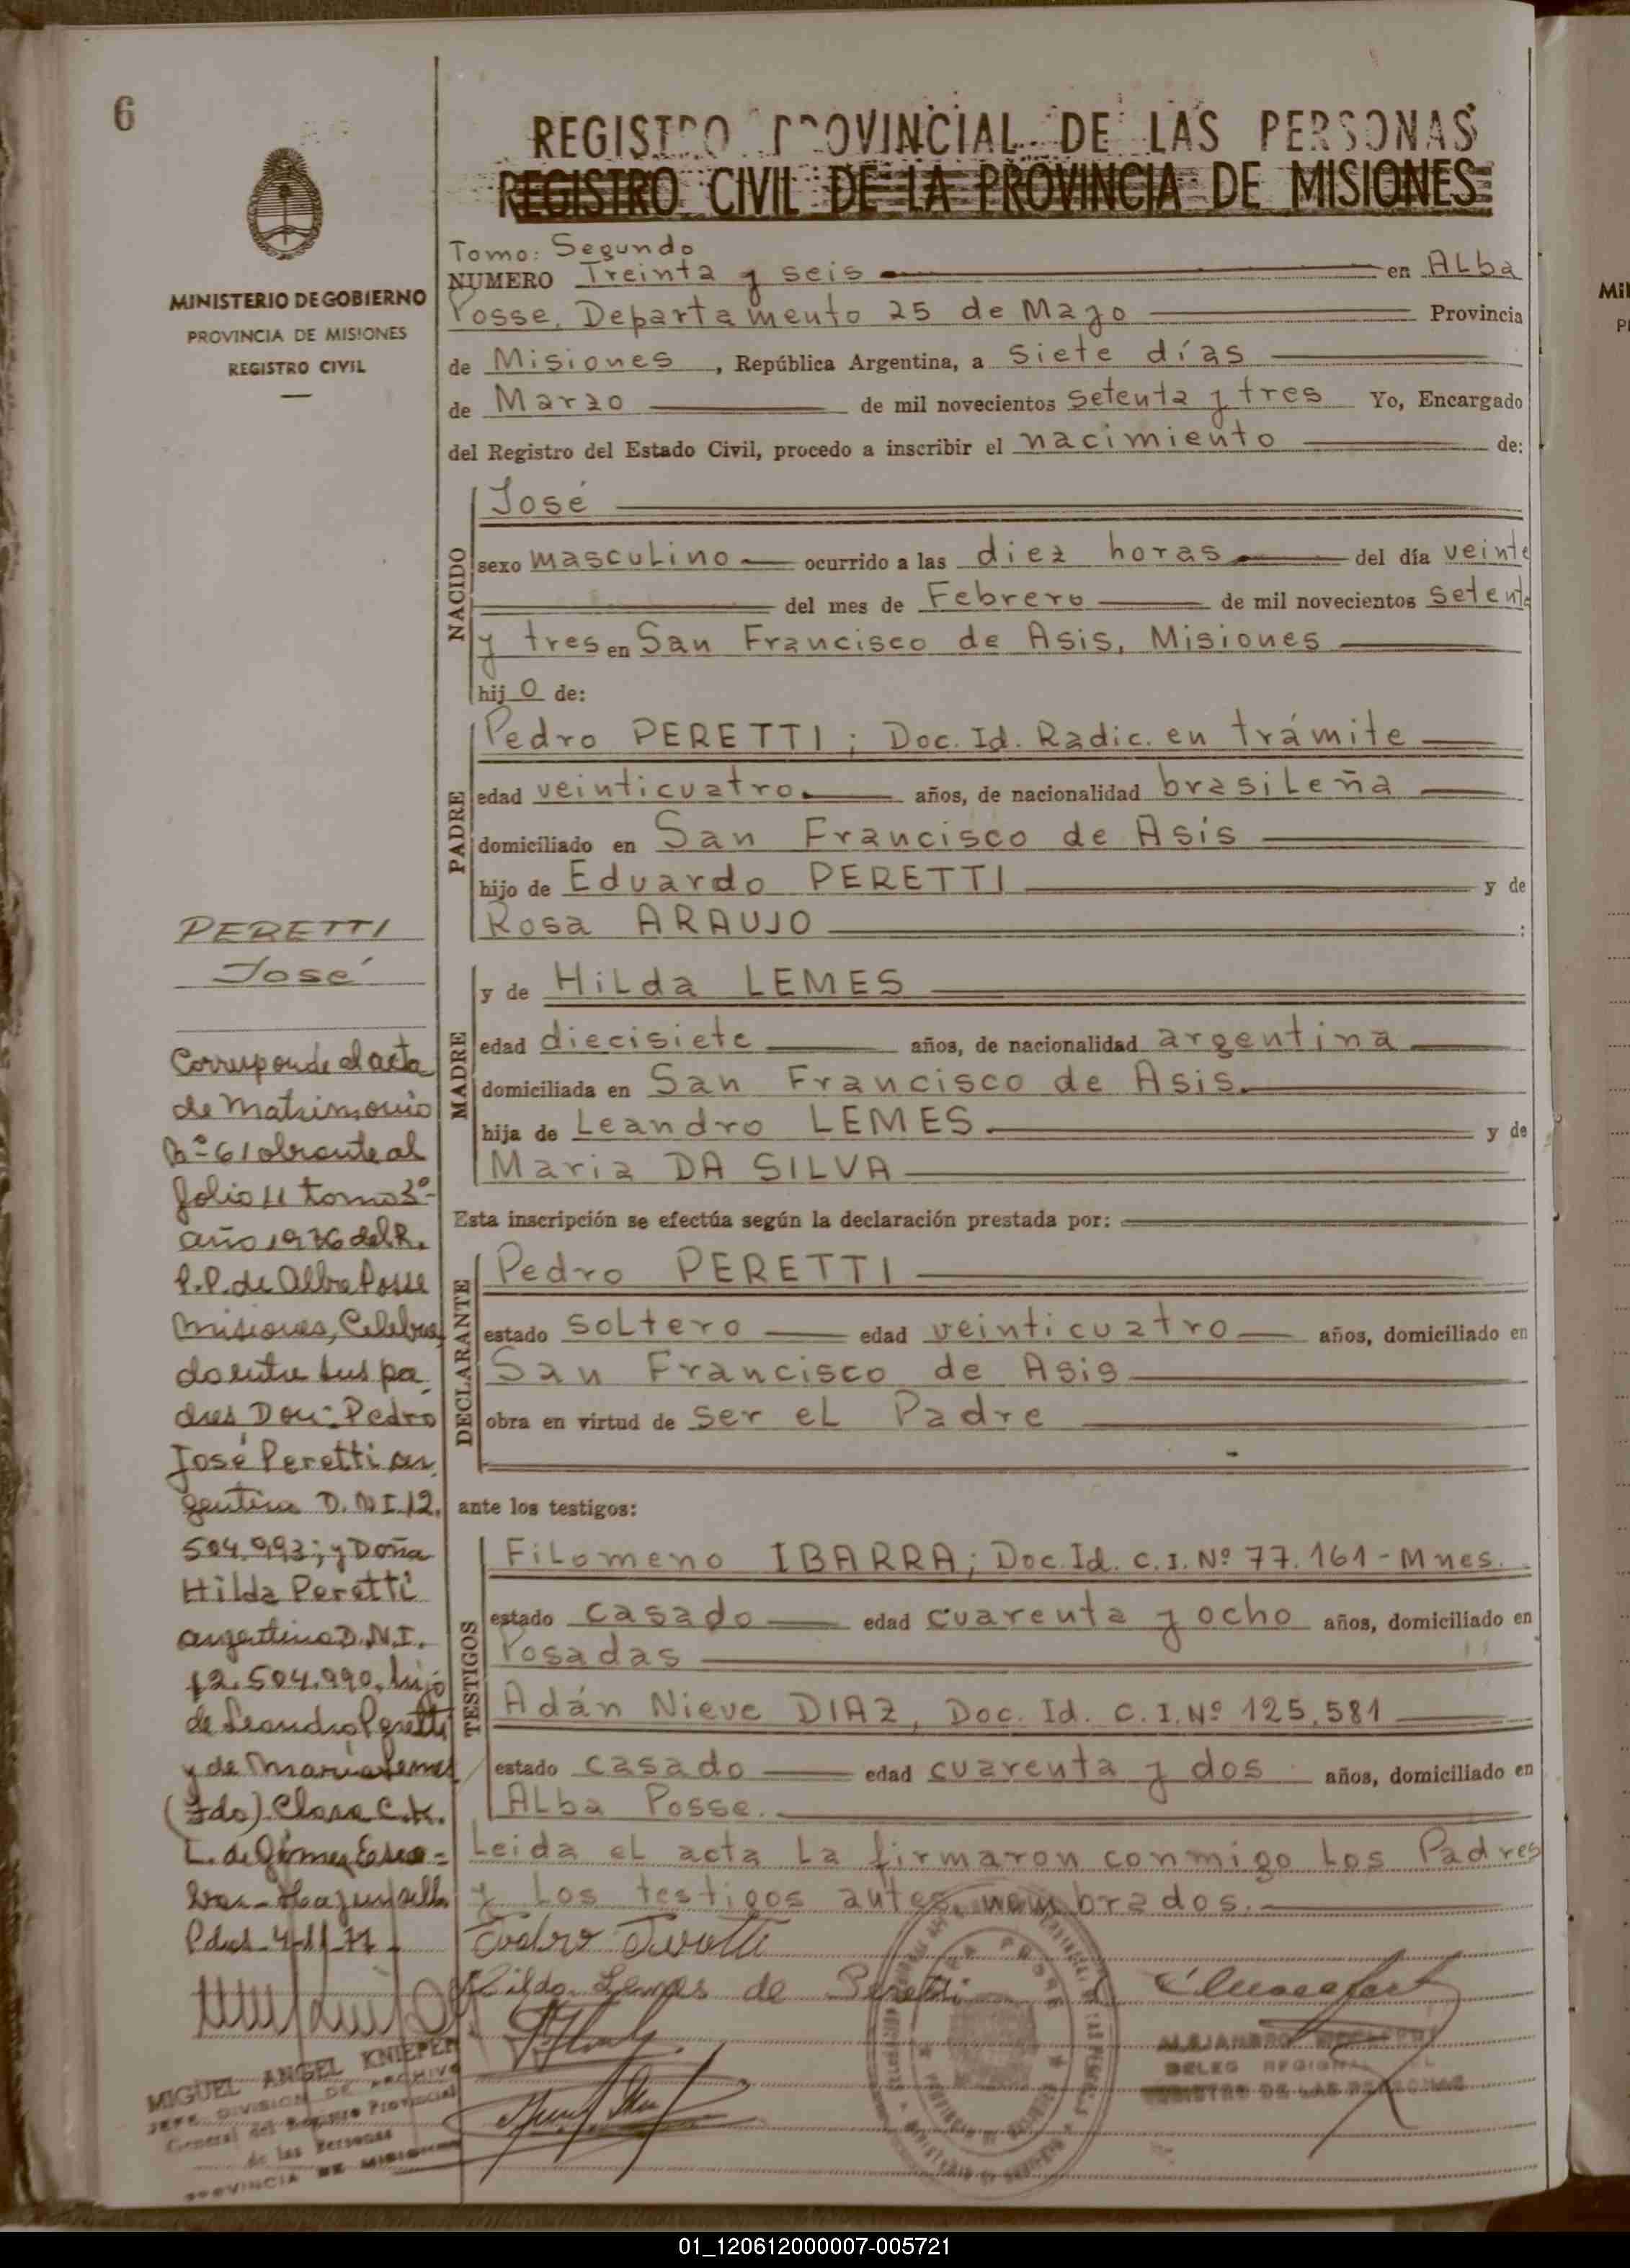 6
REGISTRO PROVINCIAL DE LAS PERSONAS
REGISTRO CIVIL DE LA PROVINCIA DE MISIONES
MINISTERIO DE GOBIERNO
PROVINCIA DE MISIONES
REGISTRO CIVIL
Tomo: Segundo
NUMERO Treinta y seis en ALba
Posse, Departamento 25 de Mayo Provincia
de Misiones, República Argentina, a siete días
de Marzo de mil novecientos setenta y tres Yo, Encargado
del Registro del Estado Civil, procedo a inscribir el nacimiento de:
NACIDO
José
sexo mascuLino ocurrido a las diez horas del día veinte
del mes de Febrero de mil novecientos setenta
y tres en San Francisco de Asis, Misiones
hijo de:
PADRE
Pedro PERETTI; Doc. Id. Radic. en trámite
edad veinticuatro años, de nacionalidad brasiLeña
domiciliado en San Francisco de Asís
hijo de Eduardo PERETTI y de
Rosa ARAUJO :
MADRE
y de HiLda LEMES
edad diecisiete años, de nacionalidad argentina
domiciliada en San Francisco de Asis.
hija de Leandro LEMES y de
Maria DA SILVA
Esta inscripción se efectúa según la declaración prestada por:
DECLARANTE
Pedro PERETTI
estado soLtero edad veinticuatro años, domiciliado en
San Francisco de Asis
obra en virtud de ser eL Padre
ante los testigos:
TESTIGOS
FiLomeno IBARRA; Doc. Id. C.I. Nº 77.161 - Mnes.
estado casado edad cuarenta y ocho años, domiciliado en
Posadas
Adán Nieve DIAZ, Doc. Id. C.I. Nº 125.581
estado casado edad cuarenta y dos años, domiciliado en
ALba Posse.
Leida eL acta La firmaron conmigo Los Padres
y Los testigos antes nombrados.
Hilda Lemes de Peretti
PERETTI
José
Corresponde al acta
de Matrimonio
Nº 61 obrante al
folio 11 tomo 3º
año 1976 del R.
P.P. de Alba Posse
Misiones, Celebra
do entre sus pa
dres Don: Pedro
José Peretti ar
gentino D.N.I. 12.
504.993; y Doña
Hilda Peretti
argentina D.N.I.
12.504.990, hija
de Leandro Peretti
y de Maria Lemes
(Fdo) Clara C.K.
L. de Gómez
Pdas 4-11-77
MIGUEL ANGEL KNIEPER
JEFE DIVISION DE ARCHIVO
General del Registro Provincial
de las Personas
PROVINCIA DE MISIONES
ALEJANDRO
DELEG REGIONAL DEL
REGISTRO DE LAS PERSONAS
01_120612000007-005721